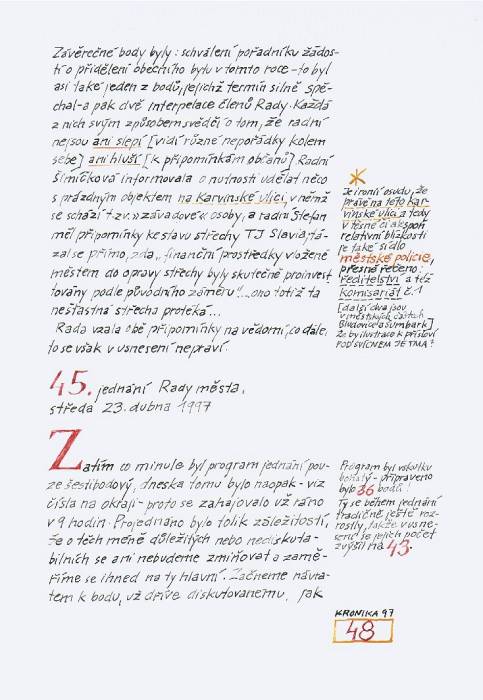 Závěrečné body byly: schválení pořadníku žádos-
tí o přidělení obecního bytu v tomto roce - to byl
asi také jeden z bodů, jejichž termín silně spě-
chal - a pak dvě interpelace členů Rady. Každá
z nich svým způsobem svědčí o tom, že radní
nejsou ani slepí [vidí různé nepořádky kolem
sebe] ani hluší [k připomínkám občanů] Radní
Šimíčková informovala o nutnosti udělat něco
s prázdným objektem na Karvinské ulici, v němž
se schází t.zv. »závadové« osoby, a radní Štefan
měl připomínky ke stavu střechy TJ Slavia, tá-
zal se přímo, zda „finanční prostředky vložené
městem do opravy střechy byly skutečně proinvest
továny podle původního záměru"... ono totiž ta
nešťastná střecha protéká...
Rada vzala obě připomínky na vědomí, co dále,
to se však v usnesení nepraví.
*
Je ironií osudu, že
právě na této Kar-
vinské ulici a tedy
v těsné či alespoň
relativní blízkosti
je také sídlo
městské policie,
přesně řečeno:
ředitelství a též
komisariát č. 1
[další dva jsou
v městských částech
Bludovice a Šumbark]
Že by ilustrace k přísloví
POD SVÍCNEM JE TMA?
45. jednání Rady města,
středa 23. dubna 1997
Zatím co minule byl program jednání pou-
ze šestibodový, dneska tomu bylo naopak - viz
čísla na okraji - proto se zahajovalo už ráno
v 9 hodin. Projednáno bylo tolik záležitostí,
že o těch méně důležitých nebo nediskuta-
bilních se ani nebudeme zmiňovat a zamě-
říme se ihned na ty hlavní. Začneme návra-
tem k bodu, už dříve diskutovanému, jak
Program byl vskutku
bohatý - připraveno
bylo 36 bodů!
Ty se během jednání
tradičně ještě roz-
rostly, takže v usne-
sení se jejich počet
zvýšil na 43.
KRONIKA 97
48